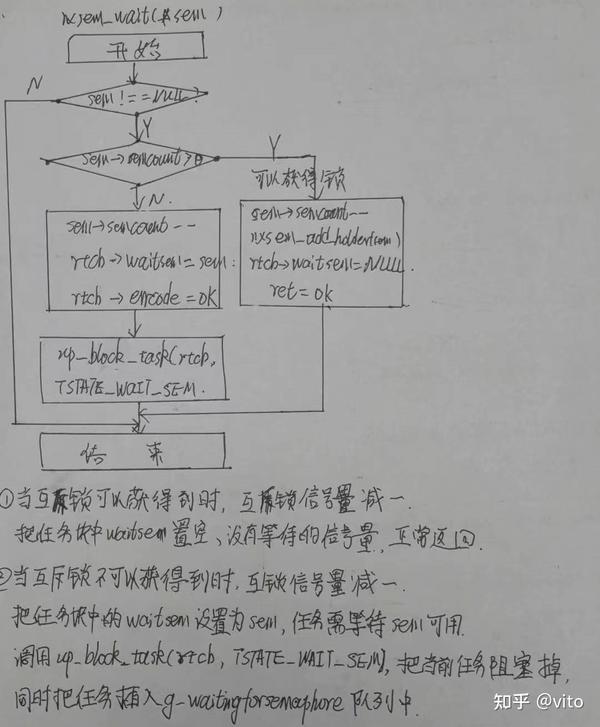 nxsem_wait(*sem)
开始
N
sem!==NULL?
Y
sem→semcount>0
Y
N.
可以获得锁
sem→semcount--
rtcb→waitsem=sem;
rtcb→errcode=OK
sem→semcount--
nxsem_add_holder(sem)
rtcb→waitsem=NULL.
ret=OK
up_block_task(rtcb,
TSTATE_WAIT_SEM.
结束
①当互斥锁可以获得到时,互斥锁信号量减一.
把任务块中waitsem置空、没有等待的信号量,正常返回.
②当互斥锁不可以获得到时,互锁信号量减一.
把任务块中的waitsem设置为sem,任务需等待sem可用.
调用up_block_task(rtcb,TSTATE_WAIT_SEM),把当前任务阻塞掉,
同时把任务插入g-waitingforsemaphore队列中.
知乎 @vito